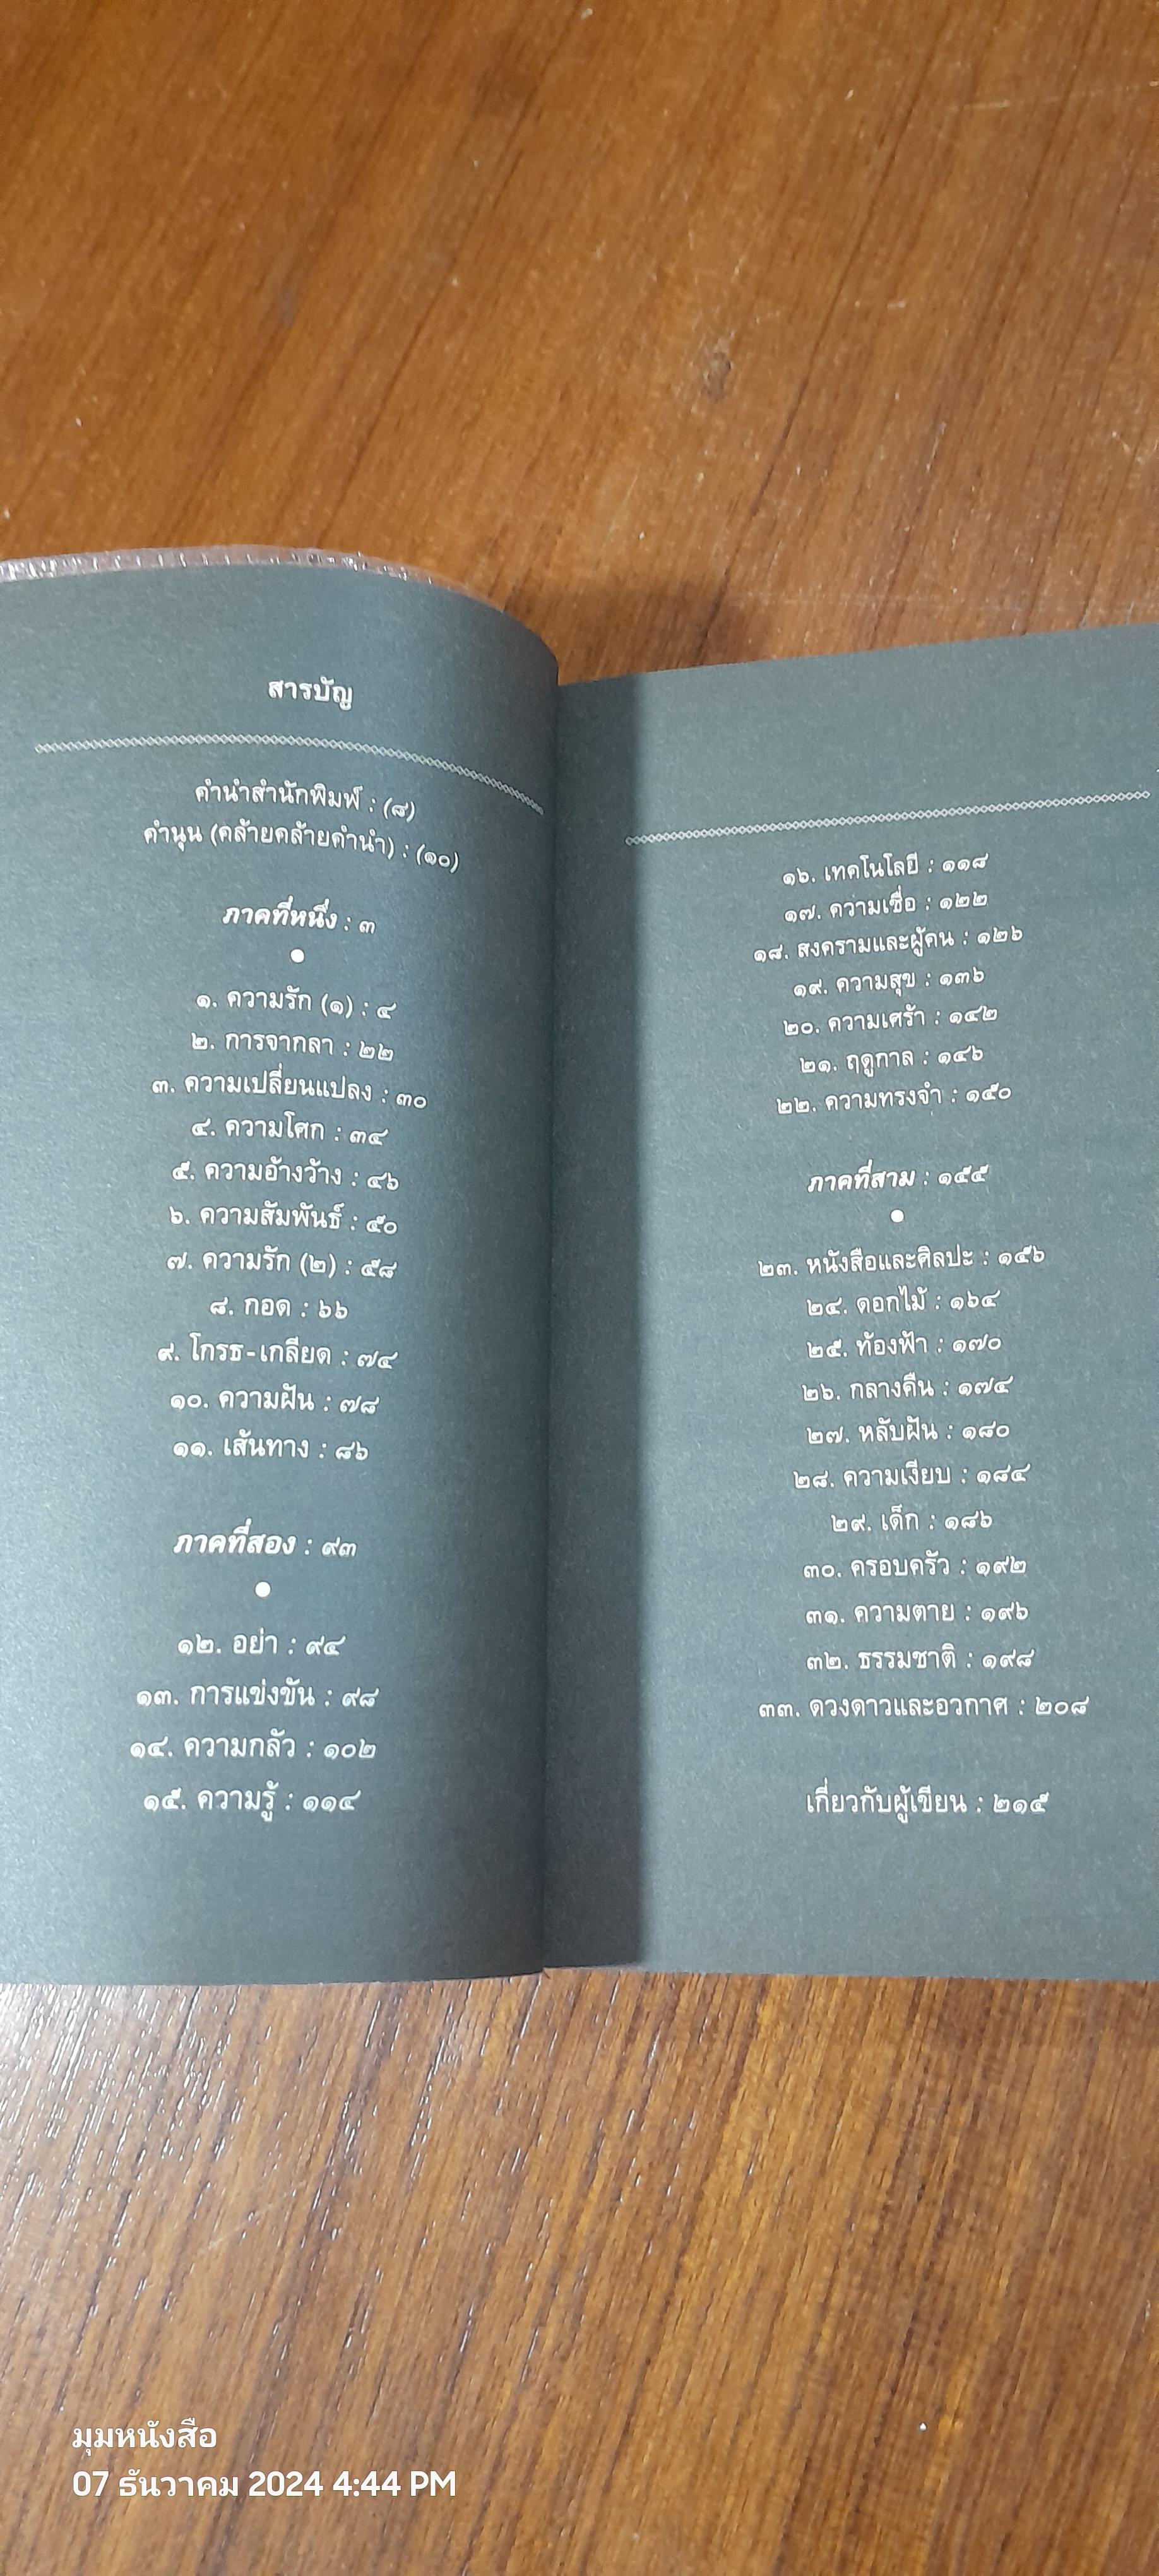 สารบัญ
คำนำสำนักพิมพ์ : (๘)
คำนุน (คล้ายคล้ายคำนำ) : (๑๐)
ภาคที่หนึ่ง : ๓
๑. ความรัก (๑) : ๔
๒. การจากลา : ๒๒
๓. ความเปลี่ยนแปลง : ๓๐
๔. ความโศก : ๓๔
๕. ความอ้างว้าง : ๔๖
๖. ความสัมพันธ์ : ๕๐
๗. ความรัก (๒) : ๕๘
๘. กอด : ๖๖
๙. โกรธ-เกลียด : ๗๔
๑๐. ความฝัน : ๗๘
๑๑. เส้นทาง : ๘๖
ภาคที่สอง : ๙๓
๑๒. อย่า : ๙๔
๑๓. การแข่งขัน : ๙๘
๑๔. ความกลัว : ๑๐๒
๑๕. ความรู้ : ๑๑๔
๑๖. เทคโนโลยี : ๑๑๘
๑๗. ความเชื่อ : ๑๒๒
๑๘. สงครามและผู้คน : ๑๒๖
๑๙. ความสุข : ๑๓๖
๒๐. ความเศร้า : ๑๔๒
๒๑. ฤดูกาล : ๑๔๖
๒๒. ความทรงจำ : ๑๕๐
ภาคที่สาม : ๑๕๕
๒๓. หนังสือและศิลปะ : ๑๕๖
๒๔. ดอกไม้ : ๑๖๔
๒๕. ท้องฟ้า : ๑๗๐
๒๖. กลางคืน : ๑๗๔
๒๗. หลับฝัน : ๑๘๐
๒๘. ความเงียบ : ๑๘๔
๒๙. เด็ก : ๑๘๖
๓๐. ครอบครัว : ๑๙๒
๓๑. ความตาย : ๑๙๖
๓๒. ธรรมชาติ : ๑๙๘
๓๓. ดวงดาวและอวกาศ : ๒๐๘
เกี่ยวกับผู้เขียน : ๒๑๕
มุมหนังสือ
07 ธันวาคม 2024 4:44 PM